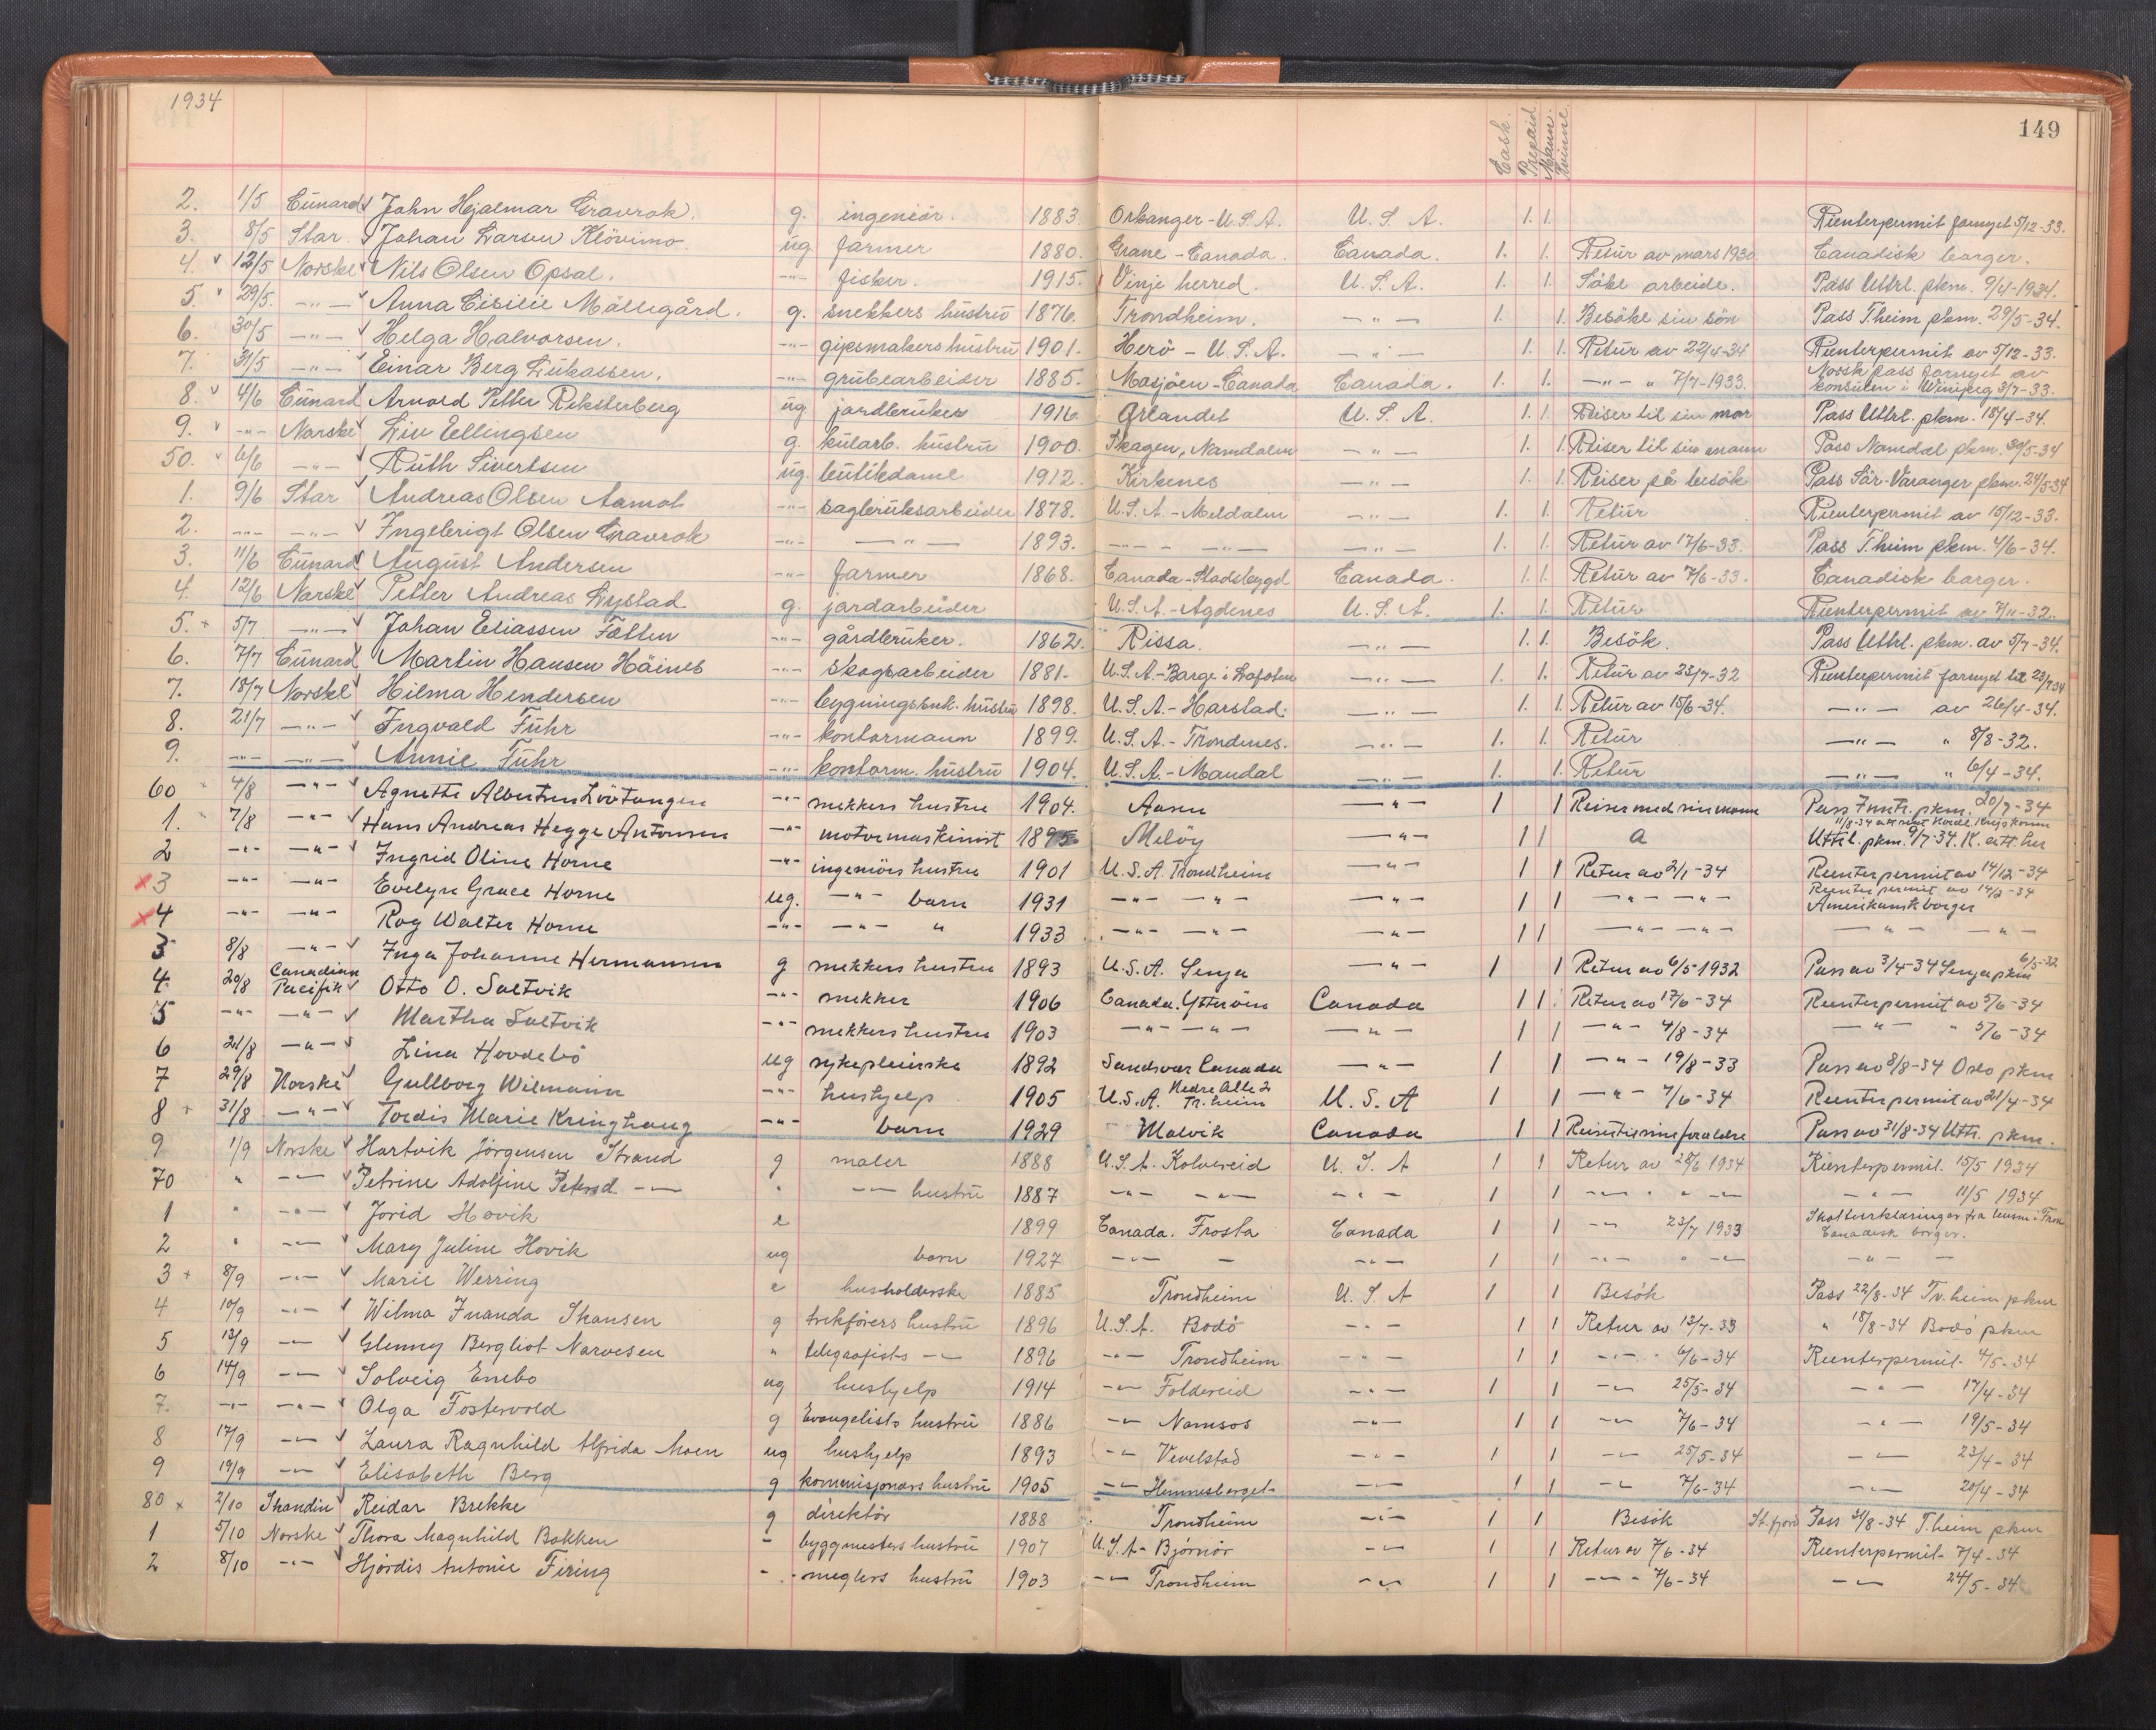 1934
149
Cash. Prepaid Mann. Kvinne
2. 1/5 Cunard John Hjalmar Gravrok. g. ingeniör. 1883. Orkanger - U.S.A. U.S.A. 1. 1. Reenterpermit fornyet 5/12-33.
3. 8/5 Star Johan Larsen Klövimo. ug. farmer 1880. Grane - Canada. Canada. 1. 1. Retur av mars 1930. Canadisk borger.
4. 12/5 Norske Nils Olsen Opsal. -"- fisker. 1915. Vinje herred. U.S.A. 1. 1. Söke arbeide. Pass Uttrl. pkm. 9/4-1934.
5. 29/5. -"- Anna Cisilie Möllegård. g. snekkers hustru 1876. Trondheim. -"- 1. 1. Besöke sin sön Pass T.heim pkm. 29/5-34.
6. 30/5 -"- Helga Halvorsen. -"- gipsmakers hustru 1901. Herö - U.S.A. -"- 1. 1. Retur av 22/4-34 Reenterpermit av 5/12-33.
7. 31/5 -"- Einar Berg Lukassen. -"- grubearbeider 1885. Mosjöen - Canada Canada. 1. 1. -"- " 7/7-1933. Norsk pass fornyet av konsulen i Winipeg 3/7-33.
8. 4/6 Cunard Arnold Petter Reksterberg ug jordbruker 1916 Örlandet U.S.A. 1. 1. Reiser til sin mor Pass Uttrl. pkm. 18/4-34.
9. -"- Norske Liv Ellingsen g. kularb. hustru 1900. Skagen, Namdalen -"- 1. 1. Reiser til sin mann Pass Namdal pkm. 30/5-34
50. 6/6 -"- Ruth Sivertsen ug. butikdame 1912. Kirkenes -"- 1. 1. Reiser på besök Pass Sör-Varanger pkm. 24/5-34
1. 9/6 Star Andreas Olsen Aamot -"- sagbruksarbeider 1878. U.S.A. - Meldalen -"- 1. 1. Retur Reenterpermit av 15/12-33.
2. -"- -"- Ingebrigt Olsen Gravrok -"- -"- 1893. -"- - -"- -"- 1. 1. Retur av 17/6-33. Pass T.heim pkm. 4/6-34.
3. 11/6 Cunard August Andersen -"- farmer 1868. Canada - Stadsbygd Canada. 1. 1. Retur av 7/6-33. Canadisk borger.
4. 12/6 Norske Petter Andreas Lystad g. jordarbeider U.S.A. - Agdenes U.S.A. 1. 1. Retur Reenterpermit av 7/11-32.
5. + 5/7 -"- Johan Eliassen Fatten -"- gårdbruker. 1862. Rissa. -"- 1. 1. Besök. Pass Uttrl. pkm. av 5/7-34.
6. 7/7 Cunard Martin Hansen Häines -"- skogsarbeider 1881. U.S.A. - Borge i Lofoten -"- 1. 1. Retur av 23/7-32 Reenterpermit fornyet til 23/7 34
7. 18/7 Norske Hilma Hendersen -"- bygningssnk. hustru 1898. U.S.A. - Harstad. -"- 1. 1. Retur av 15/6-34. -"- av 26/4-34.
8. 21/7 -"- Ingvald Führ -"- kontormann 1899. U.S.A. - Trondenes. -"- 1. 1. Retur -"- " 8/8-32.
9. -"- -"- Annie Führ -"- kontorm. hustru 1904. U.S.A. - Mandal -"- 1. 1. Retur -"- " 6/4-34.
60 4/8 -"- Agnethe Albertine Lövtangen -"- snekkers hustru 1904. Aasen -"- 1 1 Reiser med sin mann Pass Inntr. pkm. 20/7-34
1. 7/8 -"- Hans Andreas Hegge Antonsen -"- motormaskinist 1895 Melöy -"- 1 1 a Uttrl. pkm. 9/7-34.
2 -"- -"- Ingrid Oline Horne -"- ingeniörs hustru 1901 U.S.A. Trondheim -"- 1 1 Retur av 2/1-34 Reenterpermit av 14/12-34
x 3 -"- -"- Evelyn Grace Horne ug. -"- barn 1931 -"- -"- -"- 1 1 -"- -"- Reenterpermit av 14/12-34 Amerikansk borger
x 4 -"- -"- Roy Walter Horne -"- -"- " 1933 -"- -"- -"- 1 1 -"- -"- -"- -"-
3 8/8 -"- Inga Johanne Hermansen g snekkers hustru 1893 U.S.A. Senja -"- 1 1 Retur av 6/5 1932 Pass av 3/4-34 Senja pkm 6/5-32
4. 20/8 Canadian Pacifik Otto O. Saltvik -"- snekker 1906 Canada. Ytteröen Canada 1 1 Retur av 17/6-34 Reenterpermit av 5/6-34
5 -"- -"- Martha Saltvik -"- snekkers hustru 1903 -"- -"- -"- 1 1 -"- 4/8-34 -"- " 5/6-34
6 21/8 -"- Lina Hovdebö ug sykepleierske 1892 Sandsvær Canada -"- 1 1 -"- 19/8-33 Pass av 8/8-34 Oslo pkm
7 29/8 Norske Gullborg Wilmann -"- hushjelp 1905 U.S.A. Nedre Alle 2 Tr.heim U.S.A 1 1 -"- 7/6-34 Reenterpermit av 21/4-34
8 + 31/8 -"- Tordis Marie Kringhaug -"- barn 1929 Malvik Canada 1 1 Reise til sine foreldre Pass av 31/8-34 Uttr. pkm.
9 1/9 Norske Hartvik Jörgensen Strand g maler 1888 U.S.A. Kolvereid U.S.A 1 1 Retur av 28/6 1934 Reenterpermit. 15/5 1934
70 " -"- Petrine Adolfine Petersd. -"- " -"- hustru 1887 -"- -"- -"- 1 1 -"- " " -"- -"- 11/5 1934
1 " -"- Jorid Hovik e 1899 Canada. Frosta Canada 1 1 -"- 23/7 1933
2 " -"- Mary Juline Hovik ug barn 1927 -"- - -"- 1 1 -"- " -"- Canadisk borger. -"-
3 + 8/9 -"- Marie Werring e husholderske 1885 Trondheim U.S.A 1 1 Besök Pass 22/8-34 Tr.heim pkm
4 10/9 -"- Wilma Inanda Skansen g trekförers hustru 1896 U.S.A. Bodö -"- 1 1 Retur av 13/7-33 " 18/8-34 Bodö pkm
5 13/9 -"- Glenny Bergliot Narvesen " telegrafists -"- 1896 -"- Trondheim -"- 1 1 -"- " 6/6-34 Reenterpermit 4/5-34
6 14/9 -"- Solveig Enebo ug hushjelp 1914 -"- Foldereid -"- 1 1 -"- 25/5-34 -"- 17/4-34
7. -"- -"- Olga Fostervold g Evangelists hustru 1886 -"- Namsos -"- 1 1 -"- 7/6-34 -"- 19/5-34
8 17/9 -"- Laura Ragnhild Alfrida Moen ug hushjelp 1893 -"- Vevelstad -"- 1 1 -"- 25/5-34 -"- 23/4-34
9 19/9 -"- Elisabeth Berg g kommisjonærs hustru 1905 -"- Hemnesberget -"- 1 1 -"- 7/6-34 -"- 20/4-34
80 x 2/10 Skandin Reidar Brekke g direktör 1888 Trondheim -"- 1 1 Besök St.fjord Pass 31/8-34 T.heim pkm
1 5/10 Norske Thora Magnhild Bakken - byggmesters hustru 1907 U.S.A - Björnör -"- 1 1 Retur av 7/6-34 Reenterpermit 7/4-34
2 8/10 -"- Hjördis Antonie Firing -"- meglers hustru 1903 -"- Trondheim -"- 1 1 -"- " 7/6-34 -"- 24/5-34